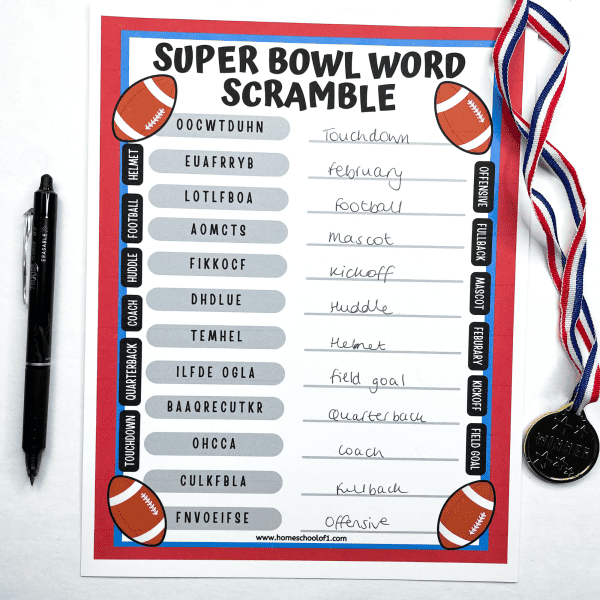 SUPER BOWL WORD
SCRAMBLE
OOCWTDUHN Touchdown
EUAFRRYB february
LOTLFBOA football
AOMCTS Mascot
FIKKOCF Kickoff
DHDLUE Huddle
TEMHEL Helmet
ILFDE OGLA field goal
BAAQRECUTKR Quarterback
OHCCA Coach
CULKFBLA fullback
FNVOEIFSE Offensive
HELMET
FOOTBALL
HUDDLE
COACH
QUARTERBACK
TOUCHDOWN
OFFENSIVE
FULLBACK
MASCOT
FEBURARY
KICKOFF
FIELD GOAL
www.homeschoolof1.com
ERASABLE
WINNER